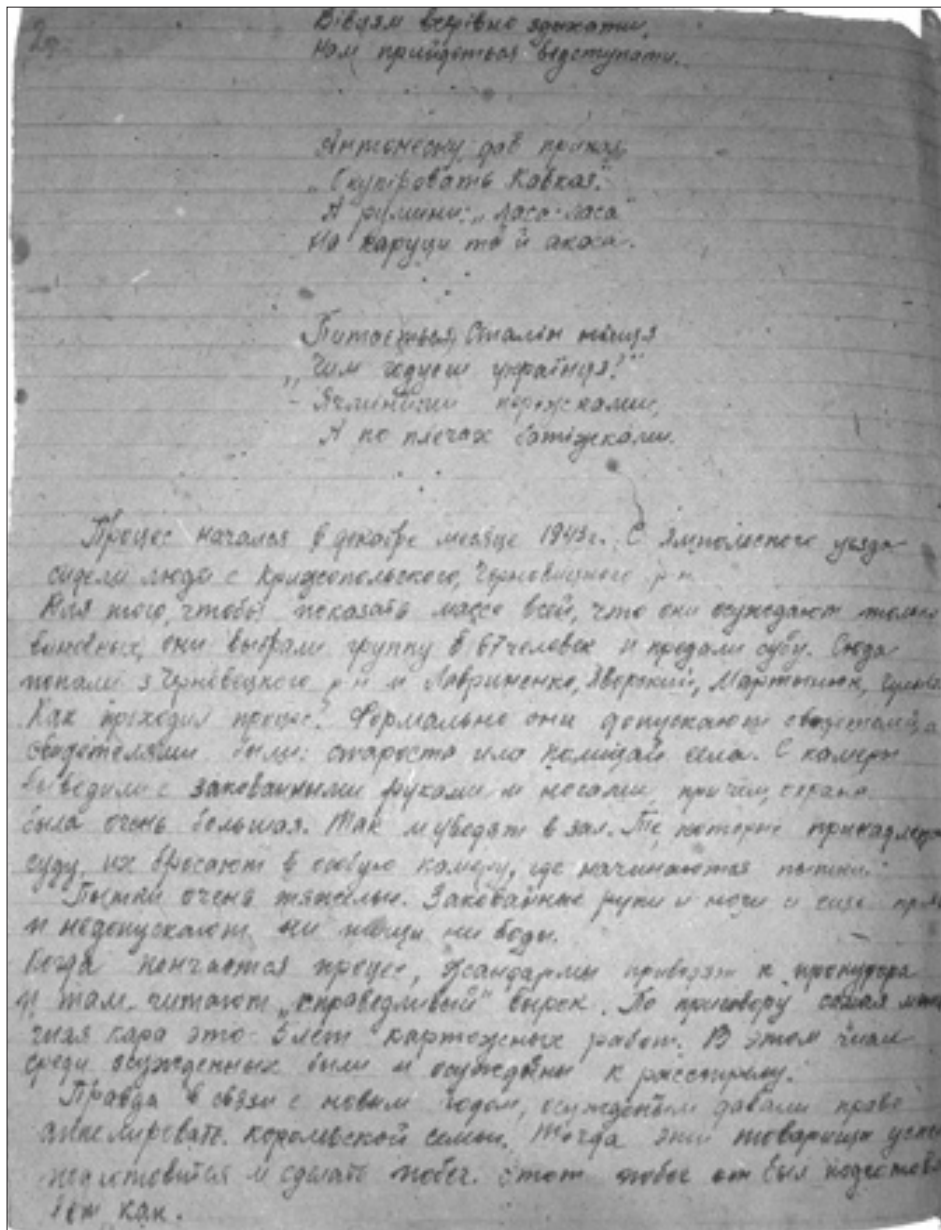 Вівцям всерівно здихати,
Нам прийдеться відступати.
Антонеску дав приказ
„Окупіровать Кавказ."
А румини: „Ласа-ласа"
На каруци та й акаса.
Питається Сталін німця
„Чим годуєш українця?"
- Ячмінними
А по плечах батіжками.
Процес начался в декабре месяце 1943 г. С Ямпольского уезда
сидели люди с Крижопольского, р-н
Для того, чтобы показать массе всей, что они осуждают только
виновных, они выбрали группу в 67 человек и предали суду. Сюда
попали з Черновецкого р-н и Лавриненко, Яворский, Мартынюк,
Как проходил процес? Формально они допускают свидетелей, а
свидетелями были: староста или полицай села. С камеры
выводили с закованными руками и ногами, причем, охрана
была очень большая. Так и уводят в зал. Те, которые принадлежат
суду, их бросают в особую камеру, где начинаются пытки.
Пытки очень тяжелые. Закованые руки и ноги и
и недопускают ни пищи ни воды.
Когда кончается процес, жандармы приводят к прокурора
и там читают „справедливый" вырок. По приговору самая
кара это 5 лет картожных работ. В этом числе
среди осужденных были и осуждены к расстрелу.
Правда в связи с новым годом, осужденым давали право
аппелировать королевской семьи. Тогда эти товарищи
подготовится и сделать побег. Этот побег был
вот как.